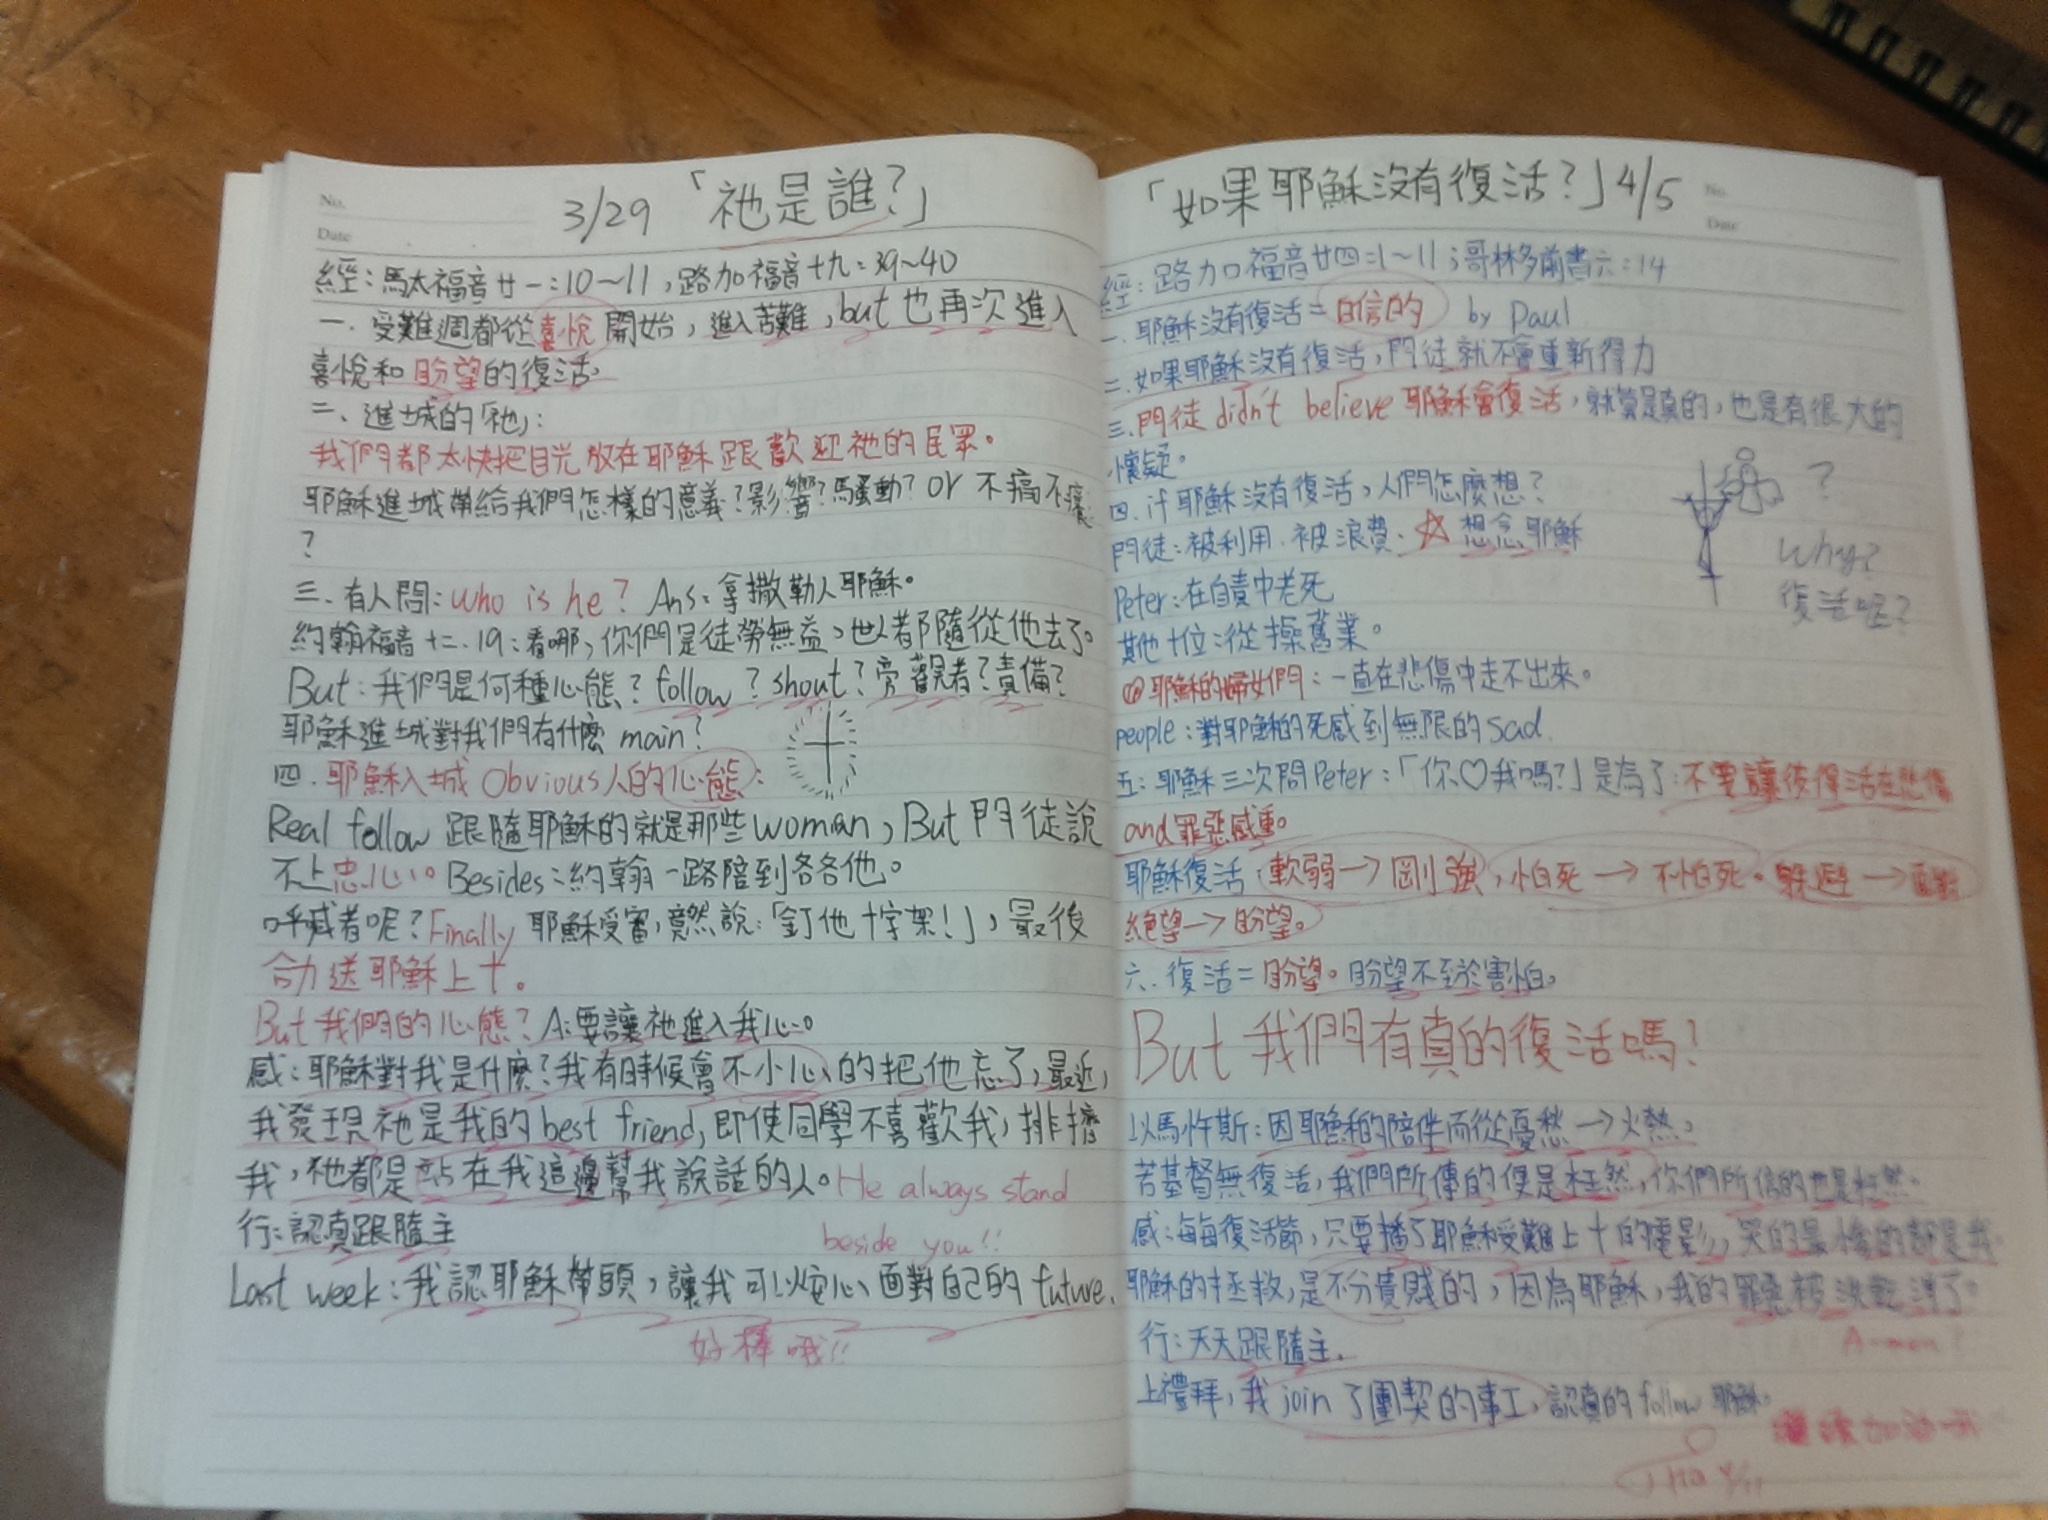 No.
Date
3/29 「祂是誰?」
經:馬太福音廿一:10~11,路加福音十九:39~40
一. 受難週都從喜悅開始,進入苦難,but 也再次進入
喜悅和盼望的復活。
二、進城的「祂」:
我們都太快把目光放在耶穌跟歡迎祂的民眾。
耶穌進城帶給我們怎樣的意義?影響?騷動? or 不痛不癢
?
三. 有人問: who is he? Ans: 拿撒勒人耶穌。
約翰福音十二.19:看哪,你們是徒勞無益,世人都隨從他去了。
But: 我們是何種心態? follow? shout? 旁觀者?責備?
耶穌進城對我們有什麼 main?
四. 耶穌入城 Obvious 人的心態:
Real follow 跟隨耶穌的就是那些 woman, But 門徒說
不上忠心。Besides:約翰一路陪到各各他。
呼喊者呢? Finally 耶穌受審,竟然說:「釘他十字架!」,最後
合力送耶穌上十。
But 我們的心態? A:要讓祂進入我心。
感:耶穌對我是什麼?我有時候會不小心的把他忘了,最近,
我發現祂是我的 best friend, 即使同學不喜歡我,排擠
我,祂都是站在我這邊幫我說話的人。He always stand
beside you!!
行:認真跟隨主
Last week:我認耶穌帶頭,讓我可以安心面對自己的 future.
好棒哦!!
「如果耶穌沒有復活?」4/5
No.
Date
經:路加福音廿四:1~11;哥林多前書六:14
一. 耶穌沒有復活= by Paul
二. 如果耶穌沒有復活,門徒就不會重新得力
三. 門徒 didn't believe 耶穌會復活,就算是真的,也是有很大的
懷疑。
四. if 耶穌沒有復活,人們怎麼想?
門徒:被利用.被浪費. ☆ 想念耶穌
Peter:在自責中老死
其他十位:從操舊業。
耶穌的婦女們:一直在悲傷中走不出來。
people:對耶穌的死感到無限的 sad.
?
Why?
復活呢?
五:耶穌三次問 Peter:「你♡我嗎?」是為了:不要讓彼得活在悲傷
and 罪惡感重。
耶穌復活:軟弱→剛強,怕死→不怕死。躲避→面對
絕望→盼望。
六. 復活=盼望。盼望不至於害怕。
But 我們有真的復活嗎?
以馬忤斯:因耶穌的陪伴而從憂愁→火熱。
若基督無復活,我們所傳的便是枉然,你們所信的也是枉然。
感:每每復活節,只要播了耶穌受難上十的電影,哭的最慘的都是我
耶穌的拯救,是不分貴賤的,因為耶穌,我的罪惡被洗乾淨了。
A-men!
行:天天跟隨主.
上禮拜,我 join 了團契的事工,認真的 follow 耶穌。
繼續加油哦